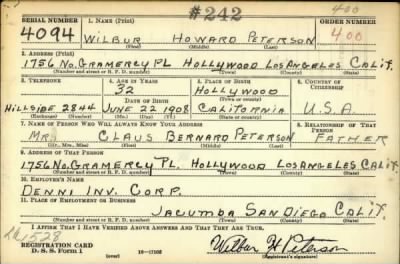 #242
400
SERIAL NUMBER 1. NAME (Print) ORDER NUMBER
4094 WILBUR HOWARD PETERSON 400
(First) (Middle) (Last)
2. ADDRESS (Print)
1756 NO. GRAMERCY PL HOLLYWOOD LOS ANGELES CALIF.
(Number and street or R. F. D. number) (Town) (County) (State)
3. TELEPHONE 4. AGE IN YEARS 5. PLACE OF BIRTH 6. COUNTRY OF CITIZENSHIP
32 HOLLYWOOD
DATE OF BIRTH (Town or county)
HILLSIDE 2844 JUNE 22 1908 CALIFORNIA U.S.A.
(Exchange) (Number) (Mo.) (Day) (Yr.) (State or country)
7. NAME OF PERSON WHO WILL ALWAYS KNOW YOUR ADDRESS 8. RELATIONSHIP OF THAT PERSON
MR. CLAUS BERNARD PETERSON FATHER
(Mr., Mrs., Miss) (First) (Middle) (Last)
9. ADDRESS OF THAT PERSON
1756 NO. GRAMERCY PL. HOLLYWOOD LOS ANGELES CALIF.
(Number and street or R. F. D. number) (Town) (County) (State)
10. EMPLOYER'S NAME
DENNI INV. CORP.
11. PLACE OF EMPLOYMENT OR BUSINESS
JACUMBA SAN DIEGO CALIF.
(Number and street or R. F. D. number) (Town) (County) (State)
I AFFIRM THAT I HAVE VERIFIED ABOVE ANSWERS AND THAT THEY ARE TRUE.
REGISTRATION CARD
D. S. S. Form 1 (over) 16—17105 Wilbur H Peterson
(Registrant's signature)